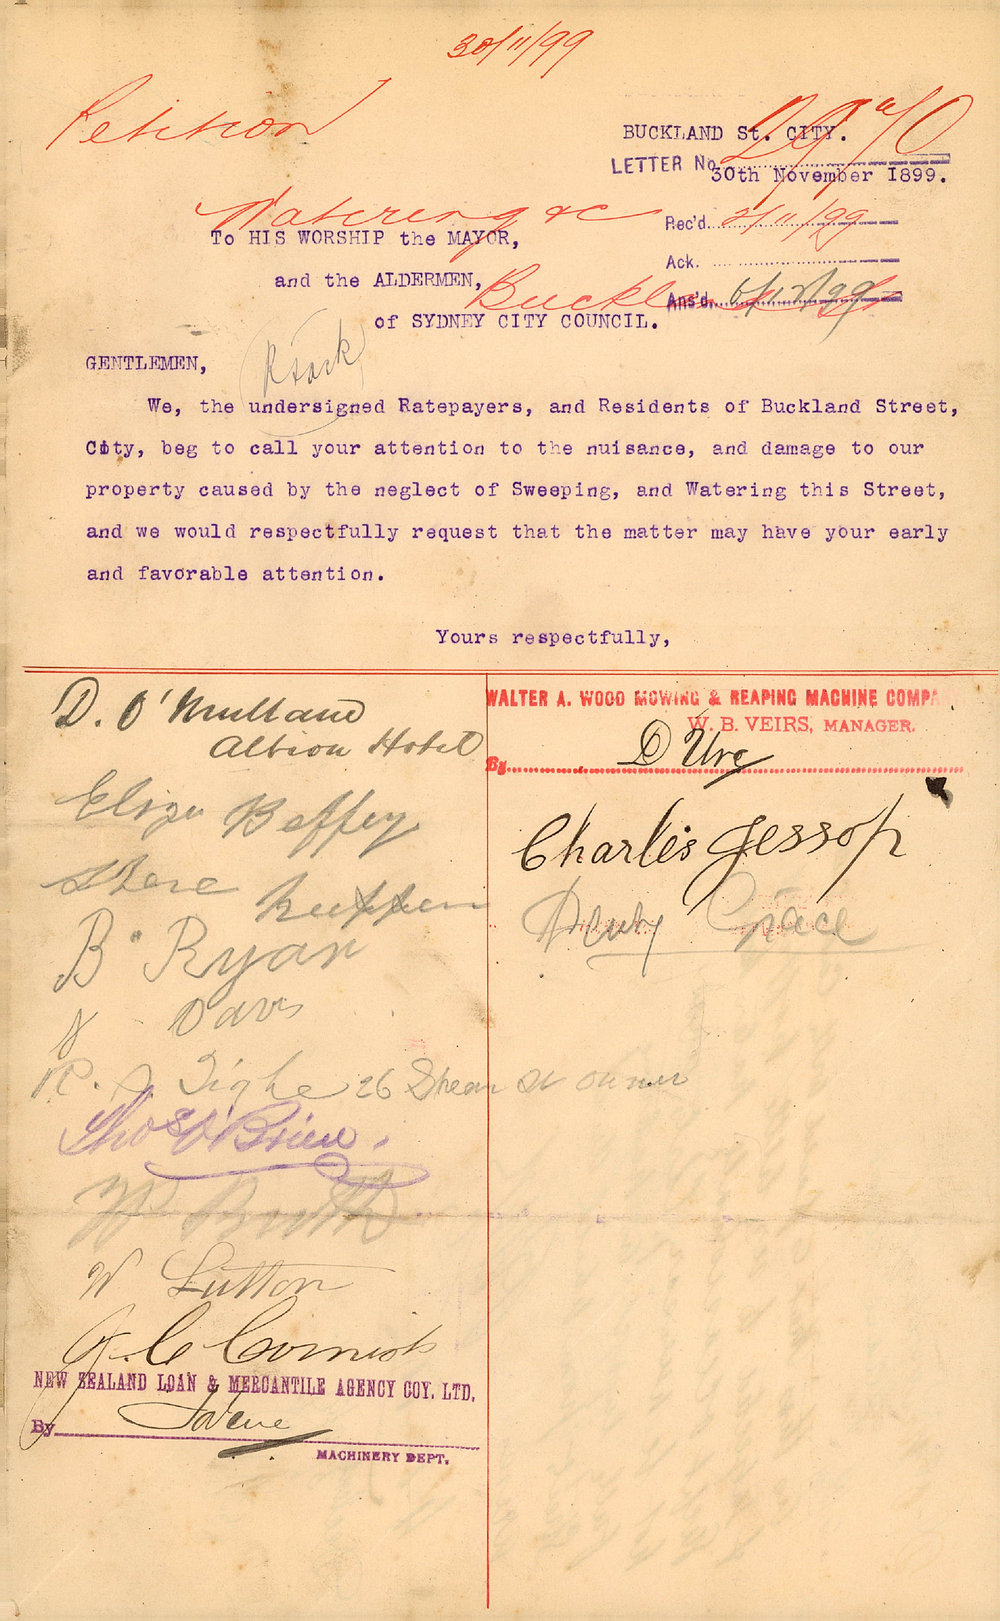 30/11/99
Petition
BUCKLAND St. CITY.
LETTER No.
30th November 1899.
Watering &c
Rec'd. 2/11/99
To HIS WORSHIP the MAYOR,
Ack.
and the ALDERMEN,
Buckland St
Ans'd. 6/12/99
of SYDNEY CITY COUNCIL.
GENTLEMEN,
We, the undersigned Ratepayers, and Residents of Buckland Street,
City, beg to call your attention to the nuisance, and damage to our
property caused by the neglect of Sweeping, and Watering this Street,
and we would respectfully request that the matter may have your early
and favorable attention.
Yours respectfully,
D. O'Mullane
Albion Hotel
Eliza Beffey
B Ryan
Davis
Tighe 26 Shear St owner
Thos O'Brien.
Wm Booth
W Sutton
J. C Cornish
NEW ZEALAND LOAN & MERCANTILE AGENCY COY. LTD.
By
MACHINERY DEPT.
WALTER A. WOOD MOWING & REAPING MACHINE COMPA
W. B. VEIRS, MANAGER.
By D Ure
Charles Jessop
Grace